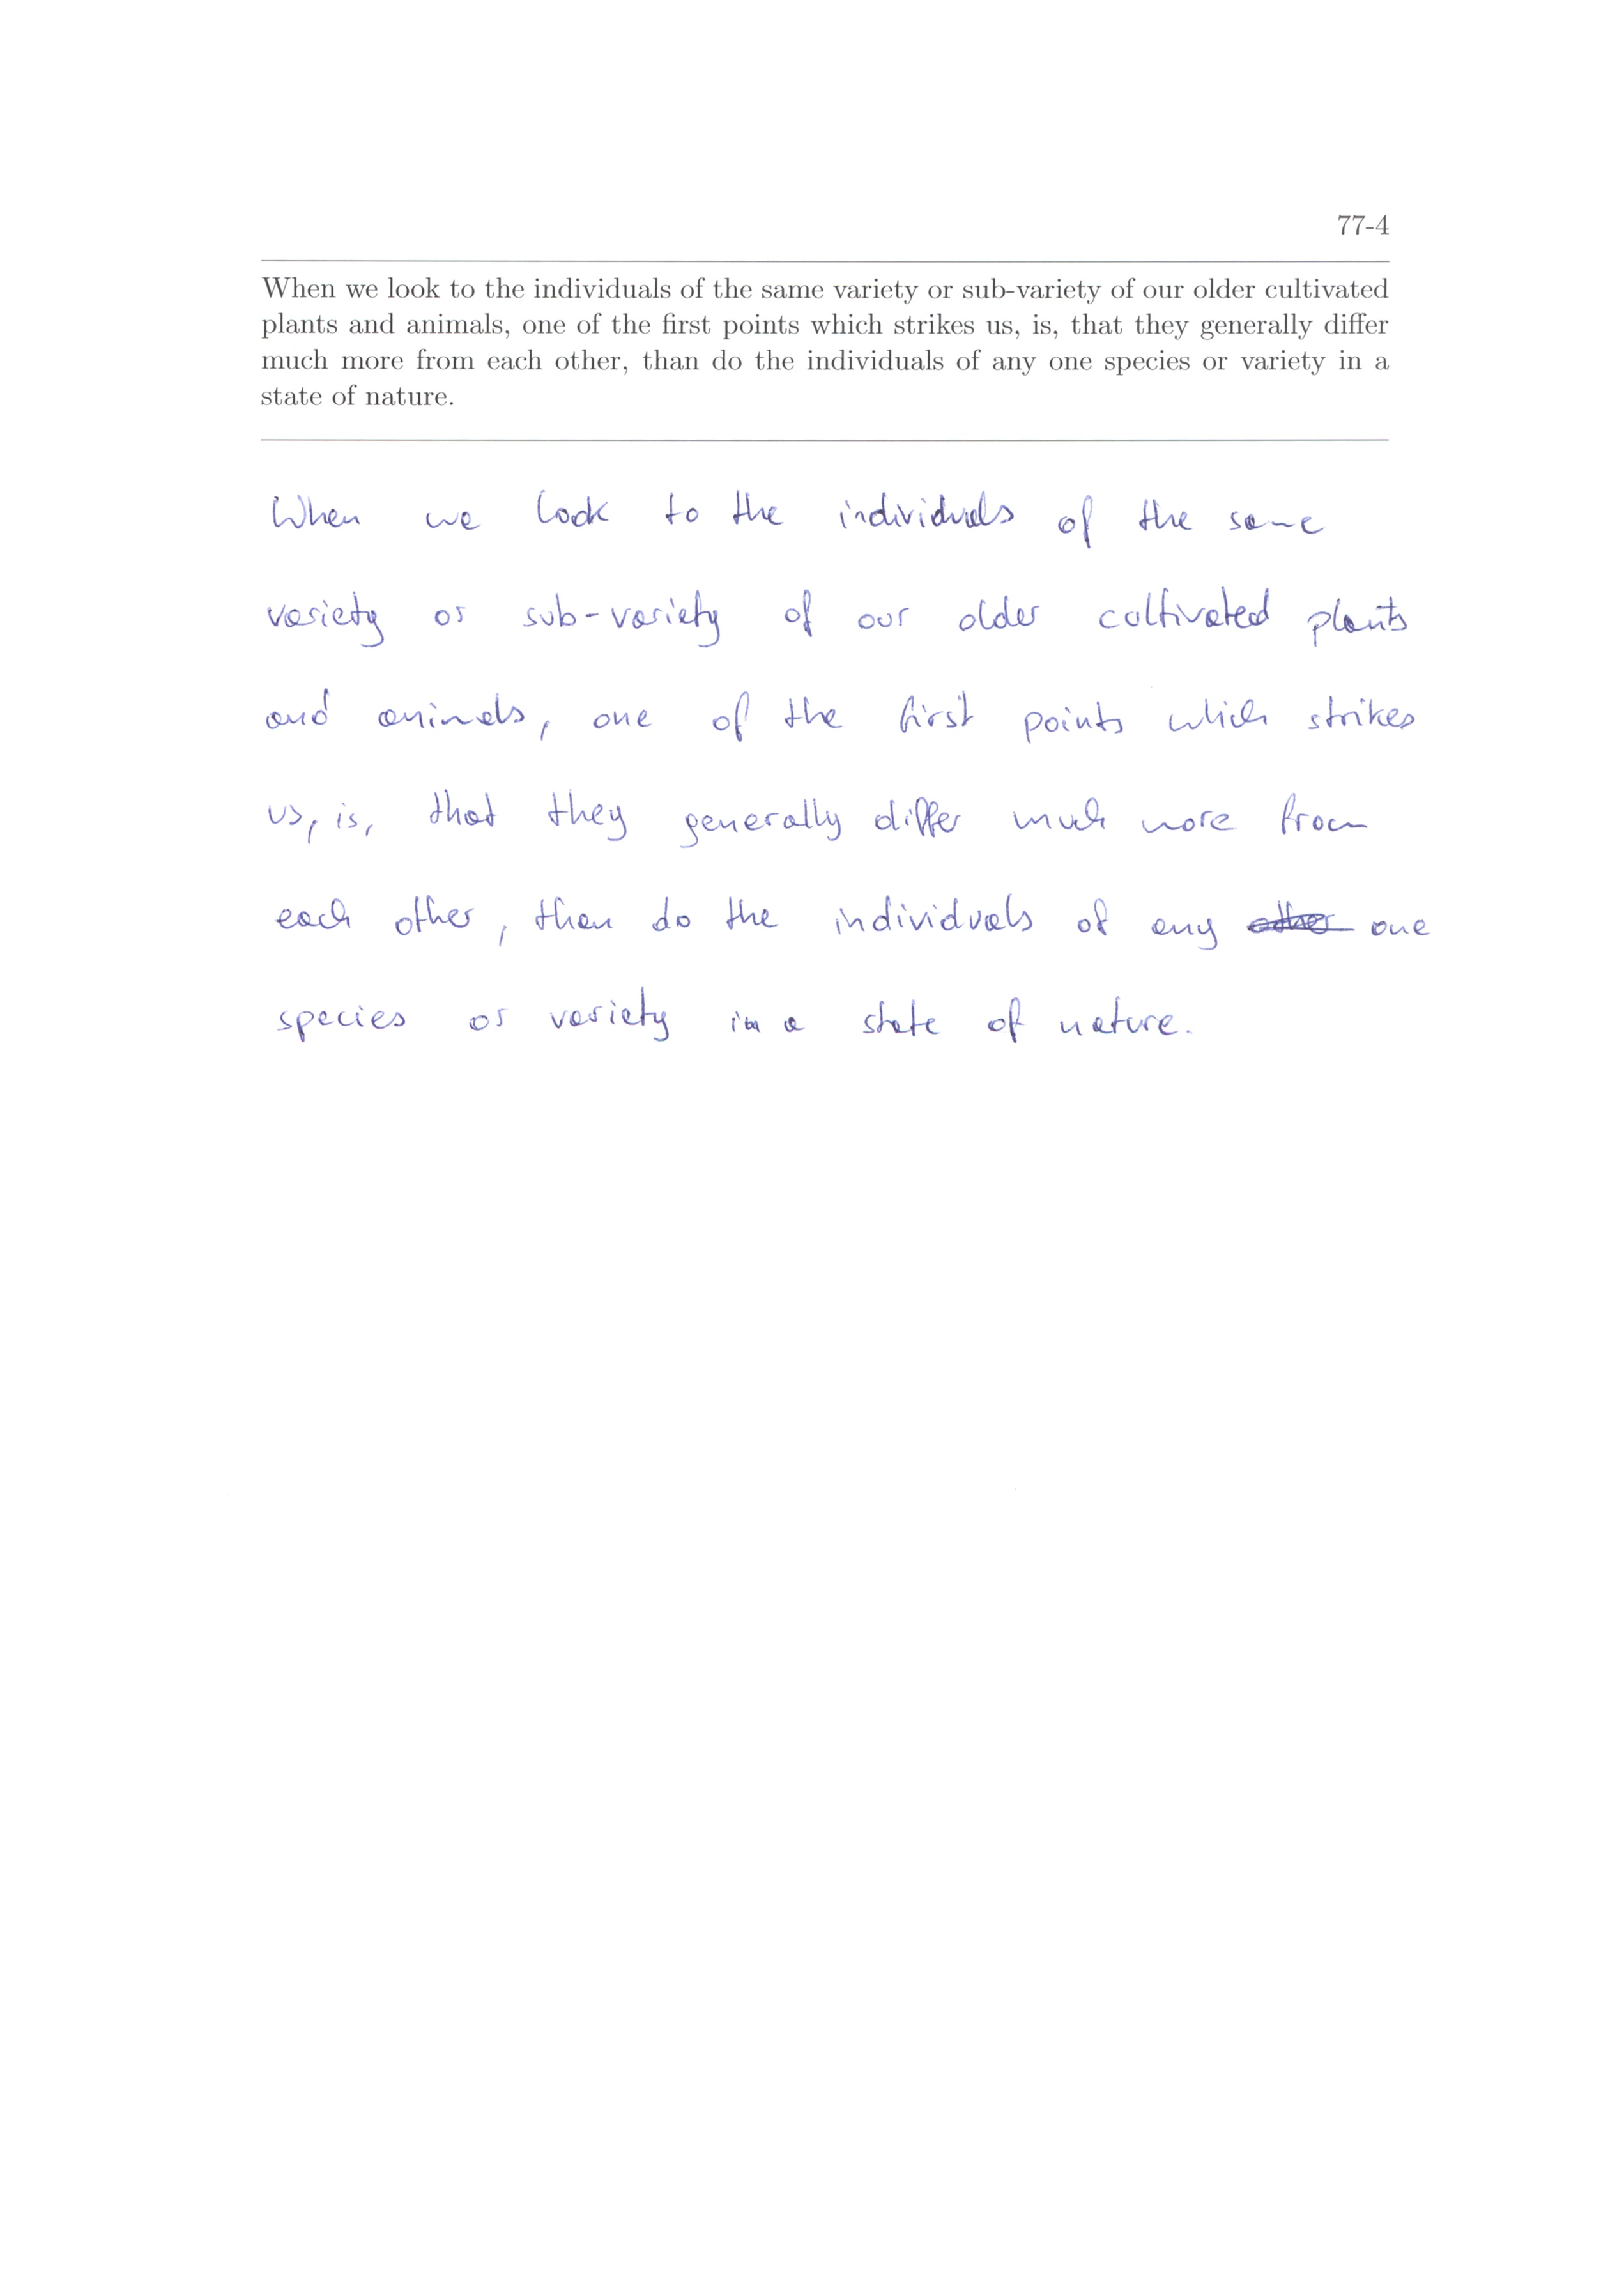 77-4
When we look to the individuals of the same variety or sub-variety of our older cultivated
plants and animals, one of the first points which strikes us, is, that they generally differ
much more from each other, than do the individuals of any one species or variety in a
state of nature.
When we look to the individuals of the same
variety or sub-variety of our older cultivated plants
and animals, one of the first points which strikes
us, is, that they generally differ much more from
each other, than do the individuals of any other one
species or variety in a state of nature.